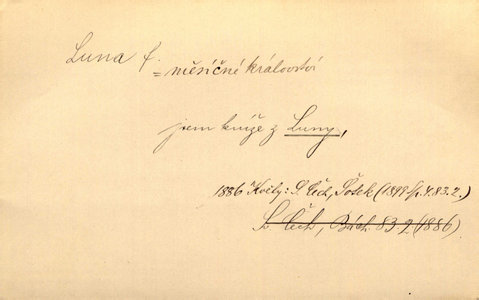 Luna f.
= měsíčné království
jsem kníže z Luny,
1886 Květy: S. Čech, Pošek (1899 Sp. 4. 83. 2.)
S. Čech, Básn. 83. 2 (1886)